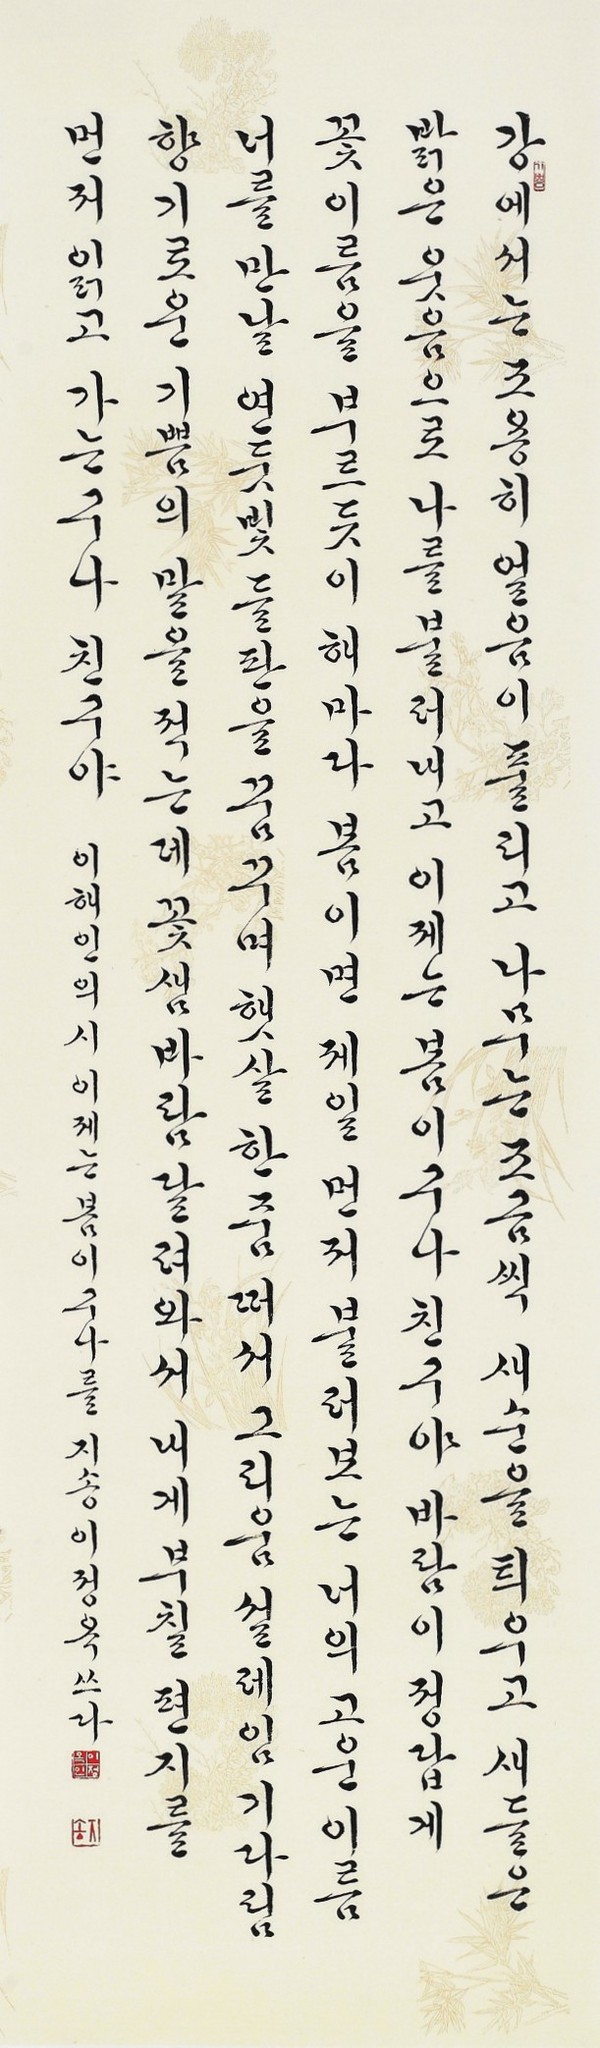 강에서는 조용히 얼음이 풀리고 나무는 조금씩 새순을 틔우고 새들은
밝은 웃음으로 나를 불러내고 이제는 봄이구나 친구야 바람이 정답게
꽃이름을 부르듯이 해마다 봄이면 제일 먼저 불러보는 너의 고운 이름
너를 만날 연둣빛 들판을 꿈꾸며 햇살 한줌 떠서 그리움 설레임 기다림
향기로운 기쁨의 말을 적는데 꽃샘바람 달려와서 내게 부칠 편지를
먼저 읽고 가는구나 친구야 이해인의 시 이제는 봄이구나를 지송 이정옥 쓰다